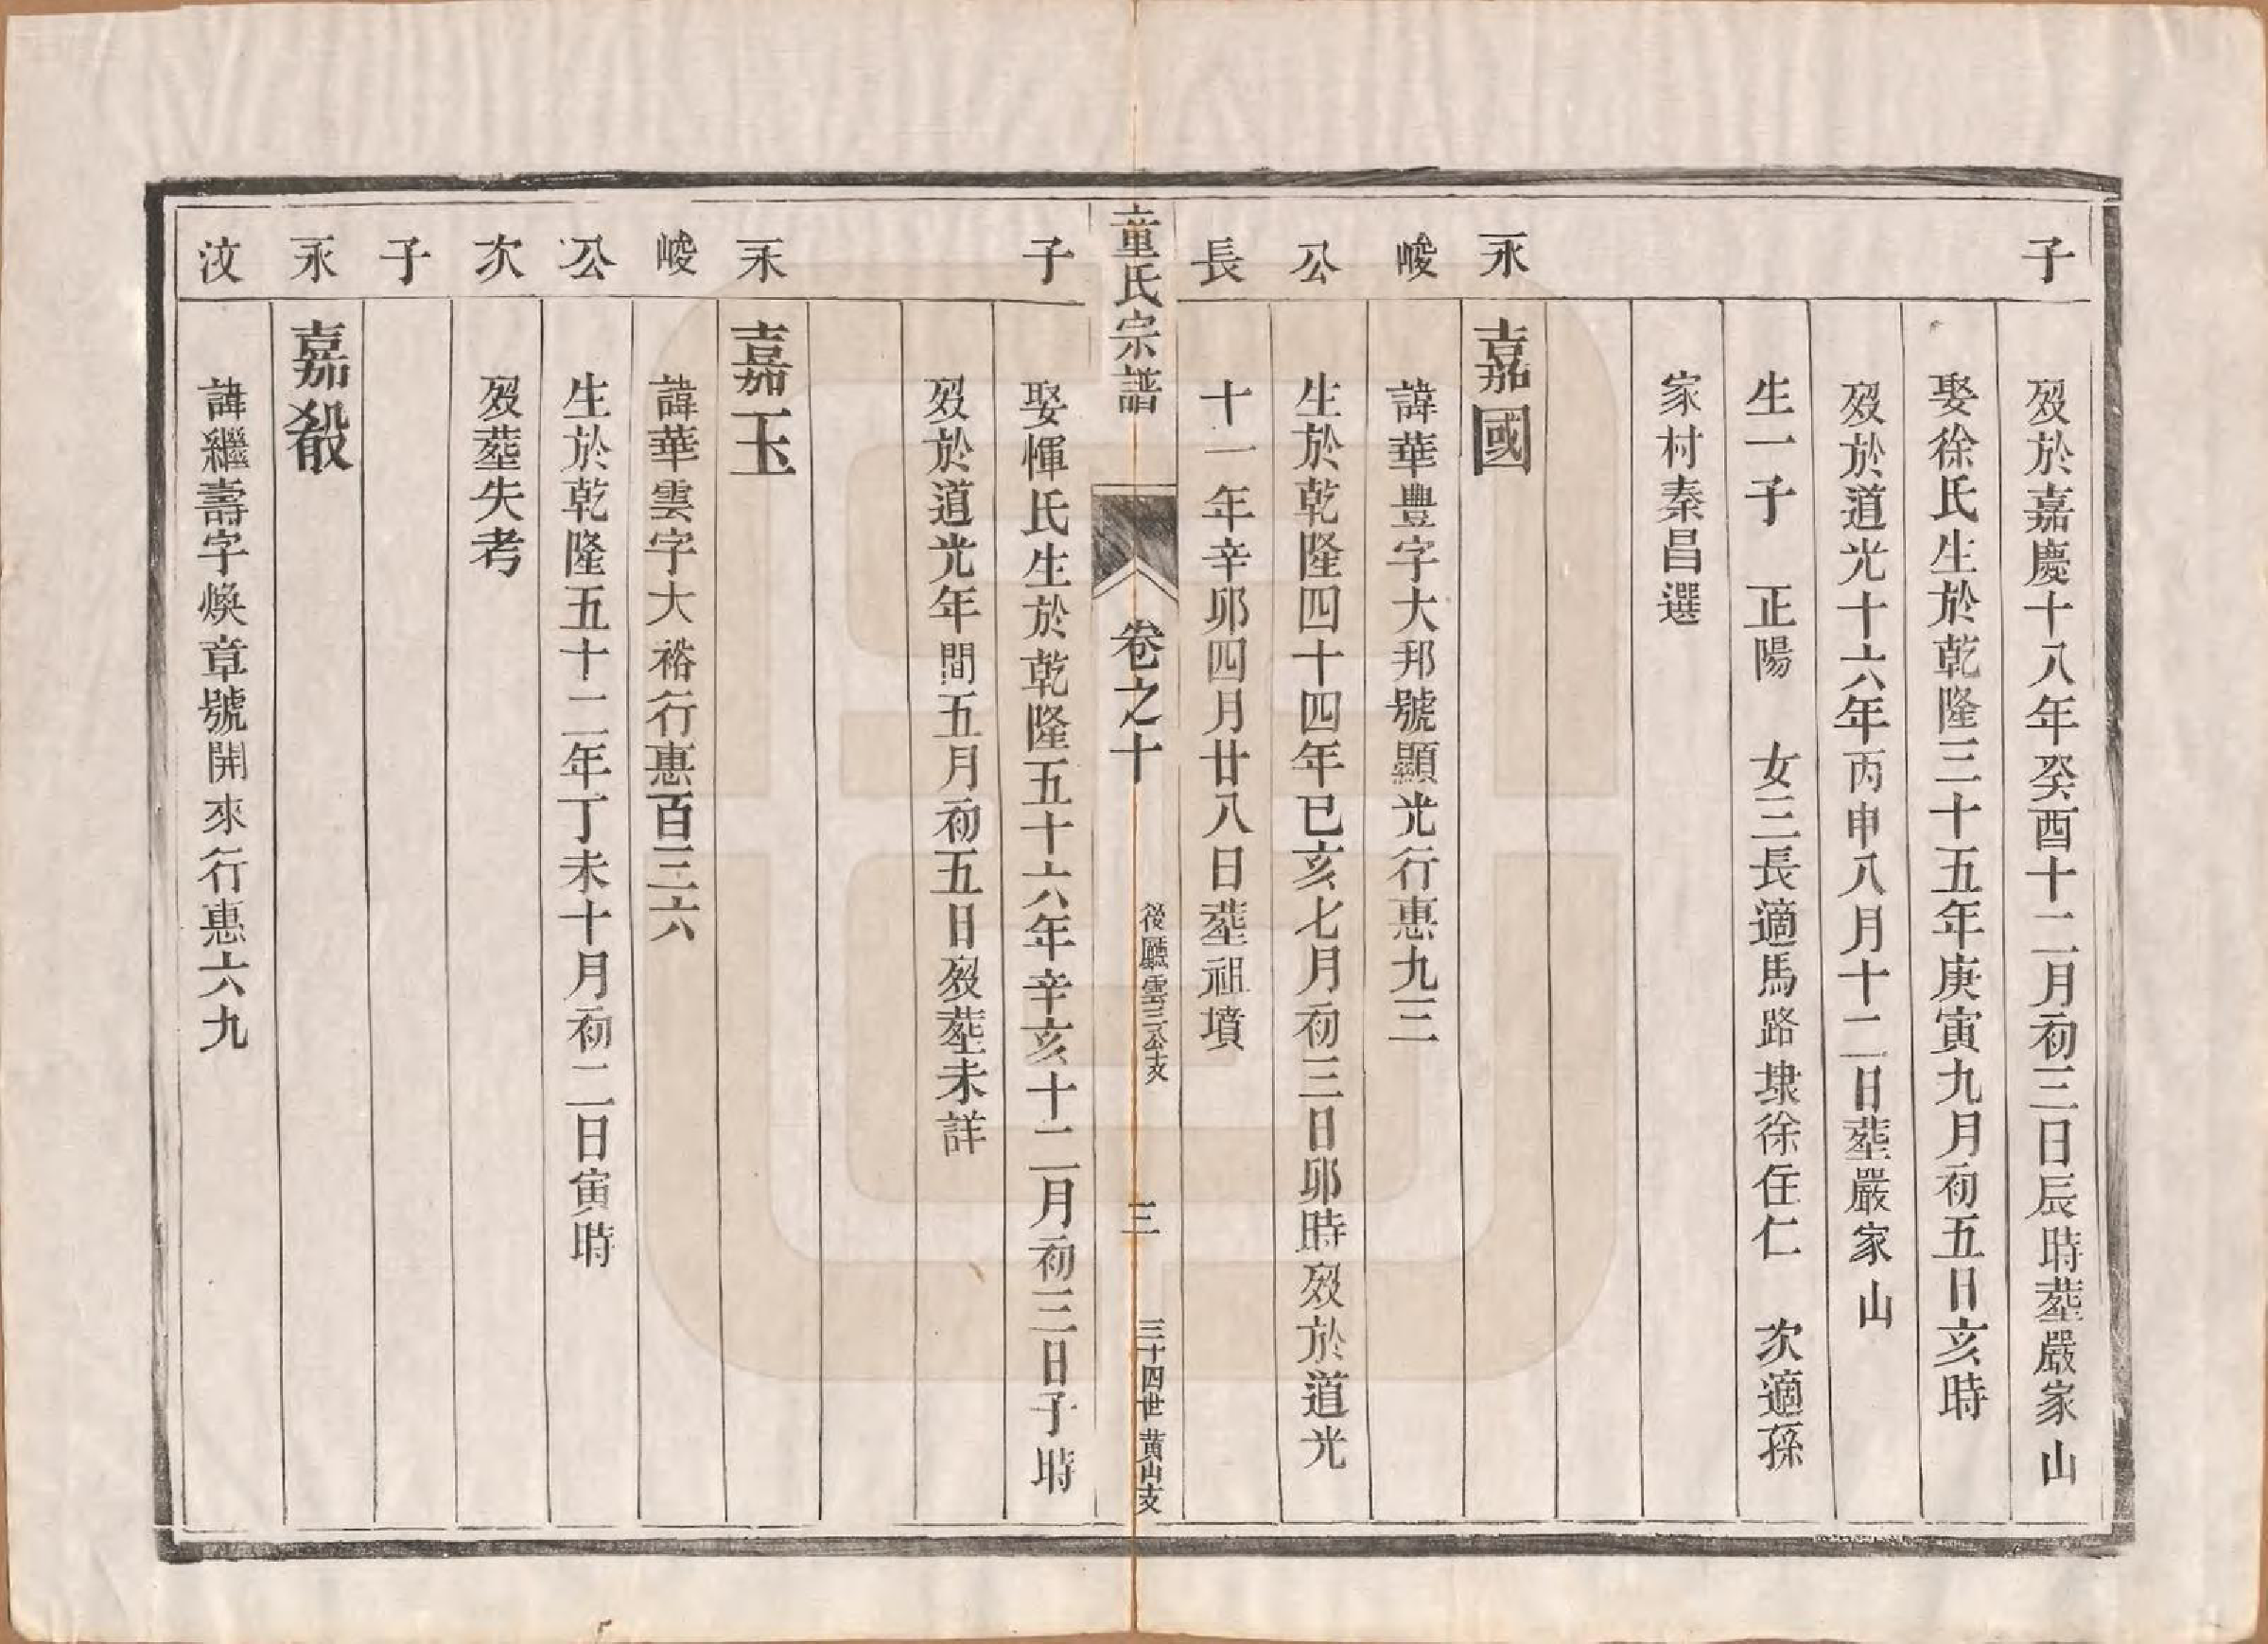 子
歿於嘉慶十八年癸酉十二月初三日辰時塟嚴家山
娶徐氏生於乾隆三十五年庚寅九月初五日亥時
歿於道光十六年丙申八月十二日塟嚴家山
生一子 正陽 女二長適馬路埭徐在仁 次適孫
家村秦昌選
永峻公長
嘉國
諱華豊字大邦號顯光行惠九三
生於乾隆四十四年已亥七月初三日卯時歿於道光
十一年辛卯四月廿八日塟祖墳
童氏宗譜
卷之十
後廳雲三公支
三
三十四世黄山支
子
娶惲氏生於乾隆五十六年辛亥十二月初三日子時
歿於道光年間五月初五日歿塟未詳
永峻公次子
嘉玉
諱華雲字大裕行惠百三六
生於乾隆五十二年丁未十月初二日寅時
歿塟失考
永汶
嘉殽
諱繼壽字煥章號開來行惠六九